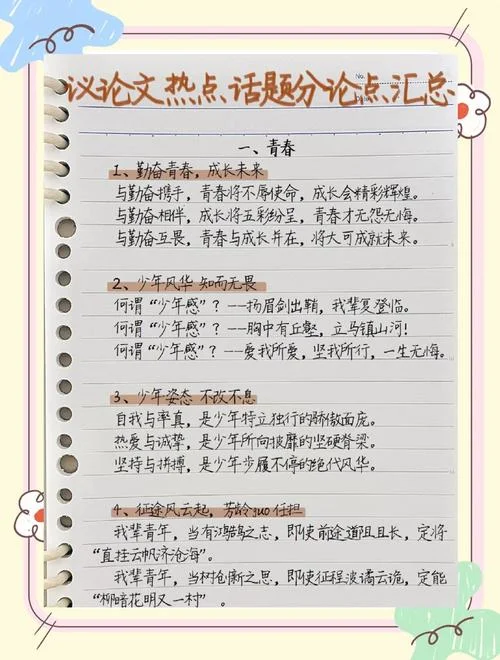 议论文热点话题分论点汇总
No.
一、青春
1、勤奋青春，成长未来
与勤奋携手，青春将不辱使命，成长会精彩辉煌。
与勤奋相伴，成长将五彩纷呈，青春才无怨无悔。
与勤奋互畏，青春与成长并在，将大可成就未来。
2、少年风华 知而无畏
何谓“少年感”？--扬眉剑出鞘，我辈复登临。
何谓“少年感”？--胸中有丘壑，立马镇山河！
何谓“少年感”？--爱我所爱，坚我所行，一生无悔。
3、少年姿态 不改不息
自我与率真，是少年特立独行的骄傲面庞。
热爱与诚挚，是少年所向披靡的坚硬脊梁。
坚持与拼搏，是少年步履不停的绝代风华。
4、征途风云起，芳龄guo任担
我辈青年，当有鸿鹄之志，即使前途道阻且长，定将
“直挂云帆济沧海”。
我辈青年，当树创新之思，即使征程波谲云诡，定能
“柳暗花明又一村”。